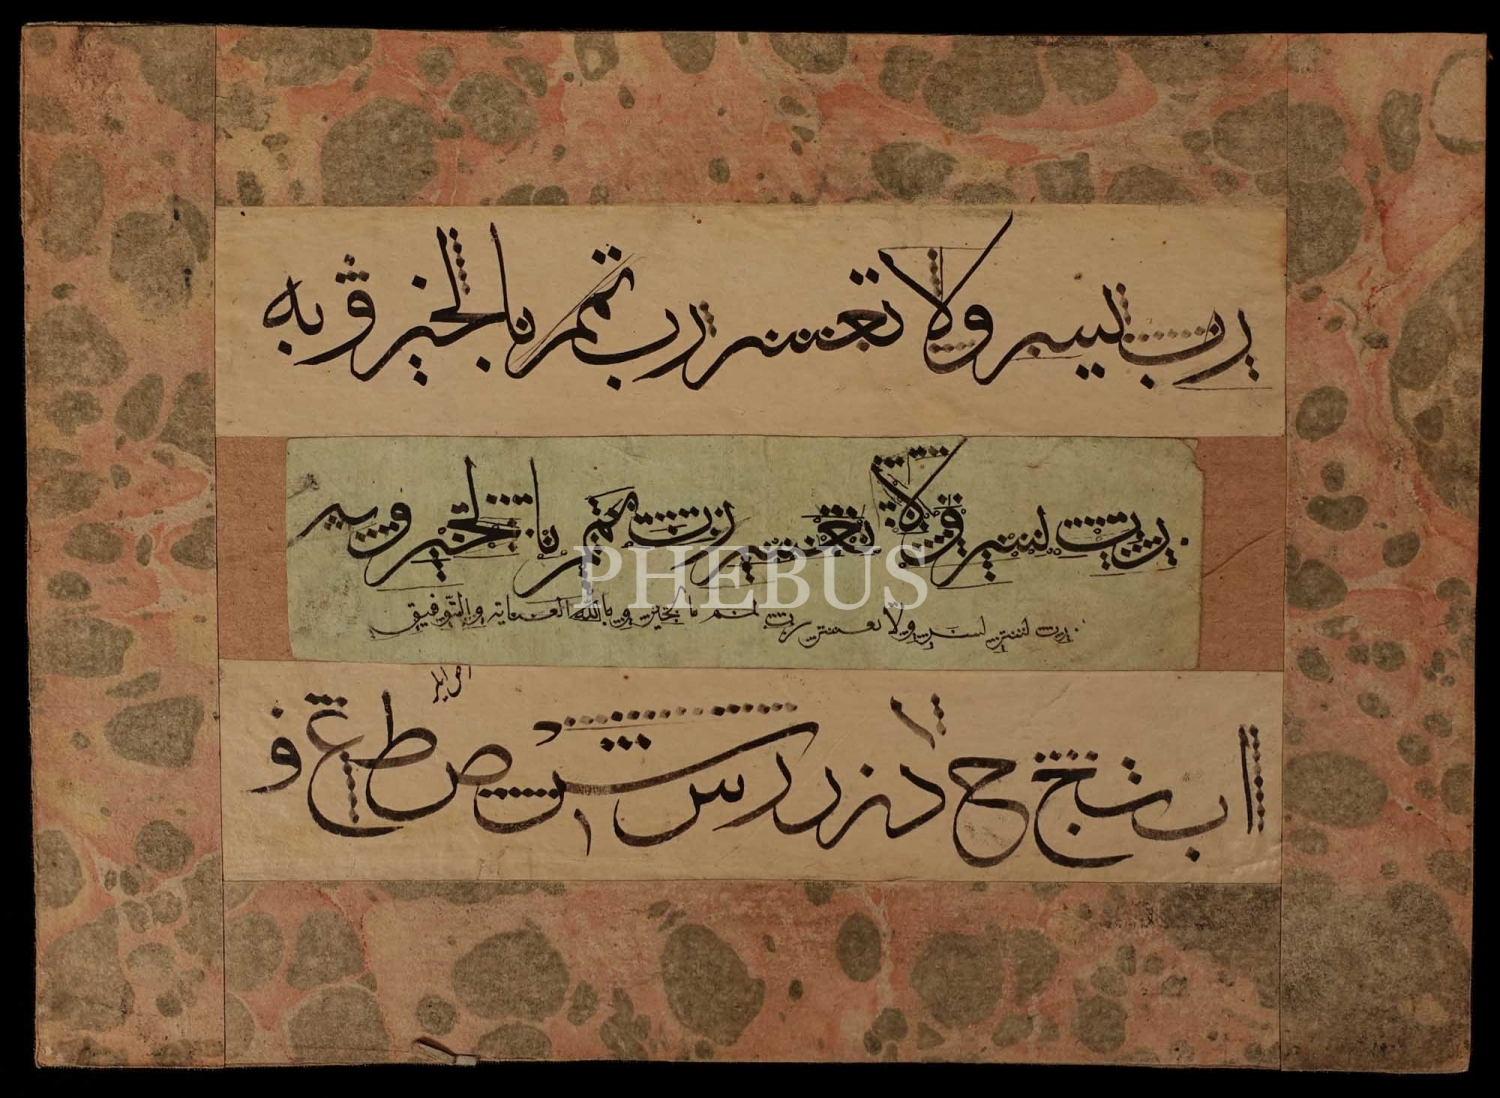 رب يسر ولا تعسر رب تمم بالخير وبه
رب يسر ولا تعسر رب تمم بالخير وبه
رب يسر ولا تعسر رب تمم بالخير وبالله العناية والتوفيق
ا ب ث ج ح د ز ر ر س ش ص ط ع و
PHEBUS